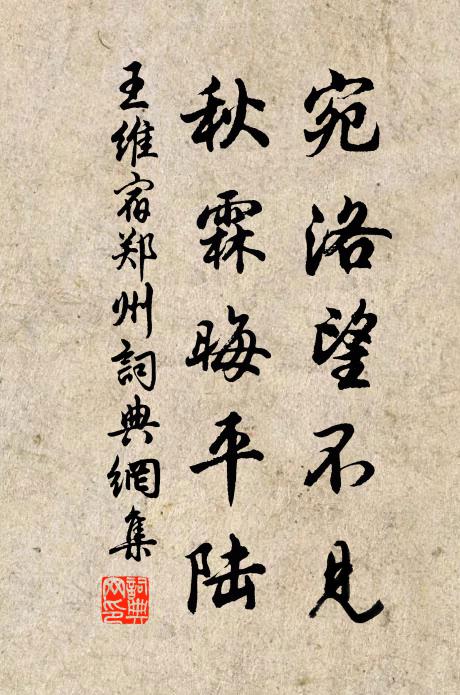 宛洛望不见
秋霖晦平陆
王维宿郑州詞典網集
詞典
网印